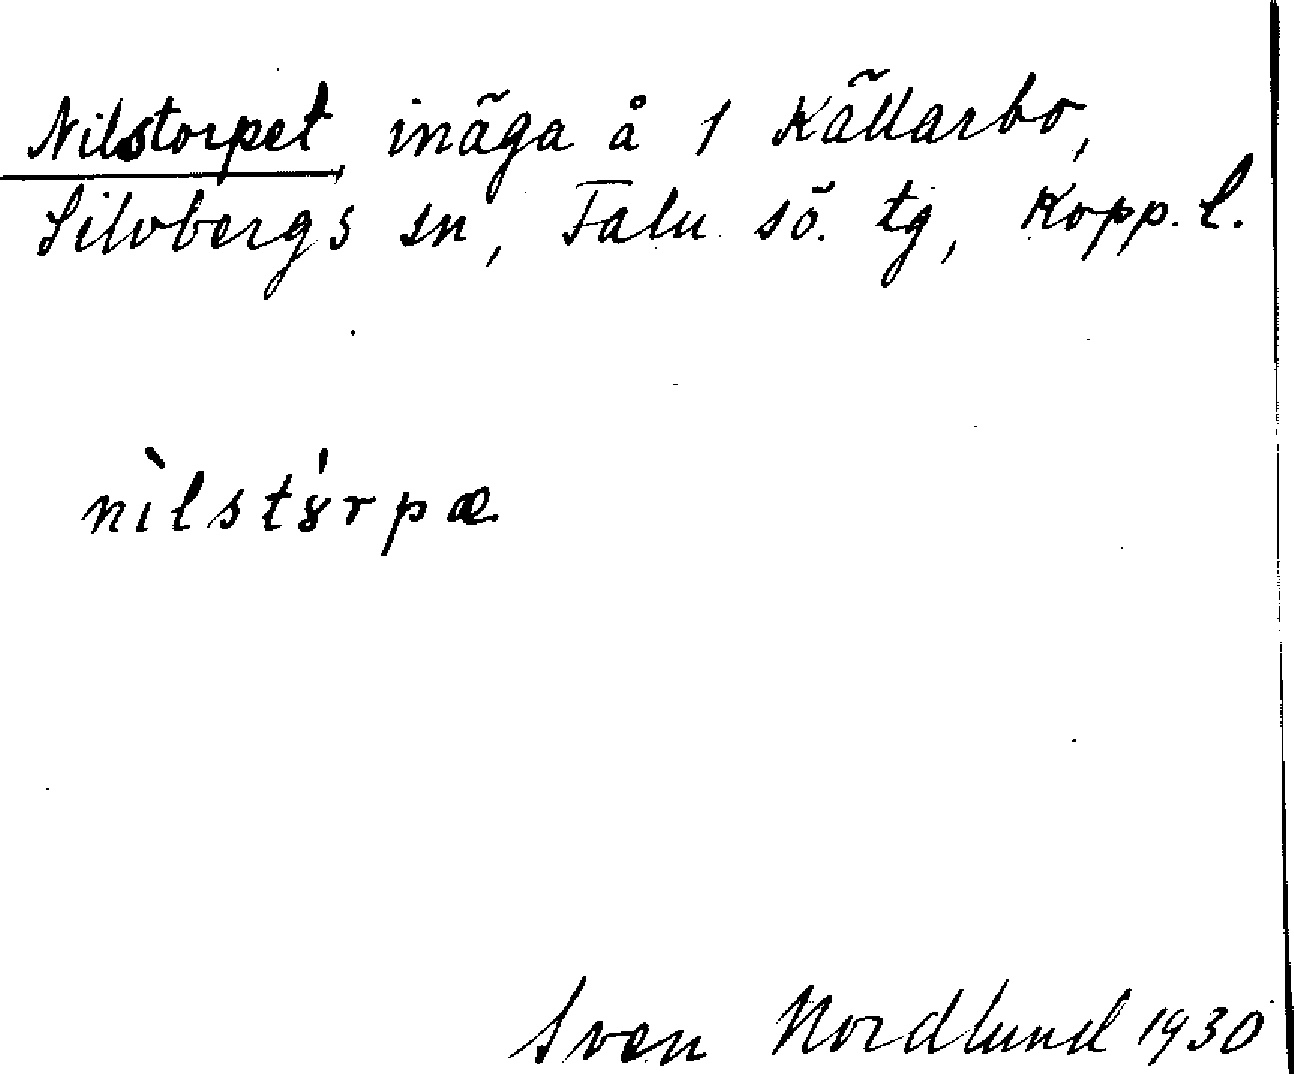 Nilstorpet, inäga å 1 Källarbo,
Silvbergs sn, Falu sö. tg, Kopp. l.
nìlstɤ́rpæ
Sven Nordlund 1930